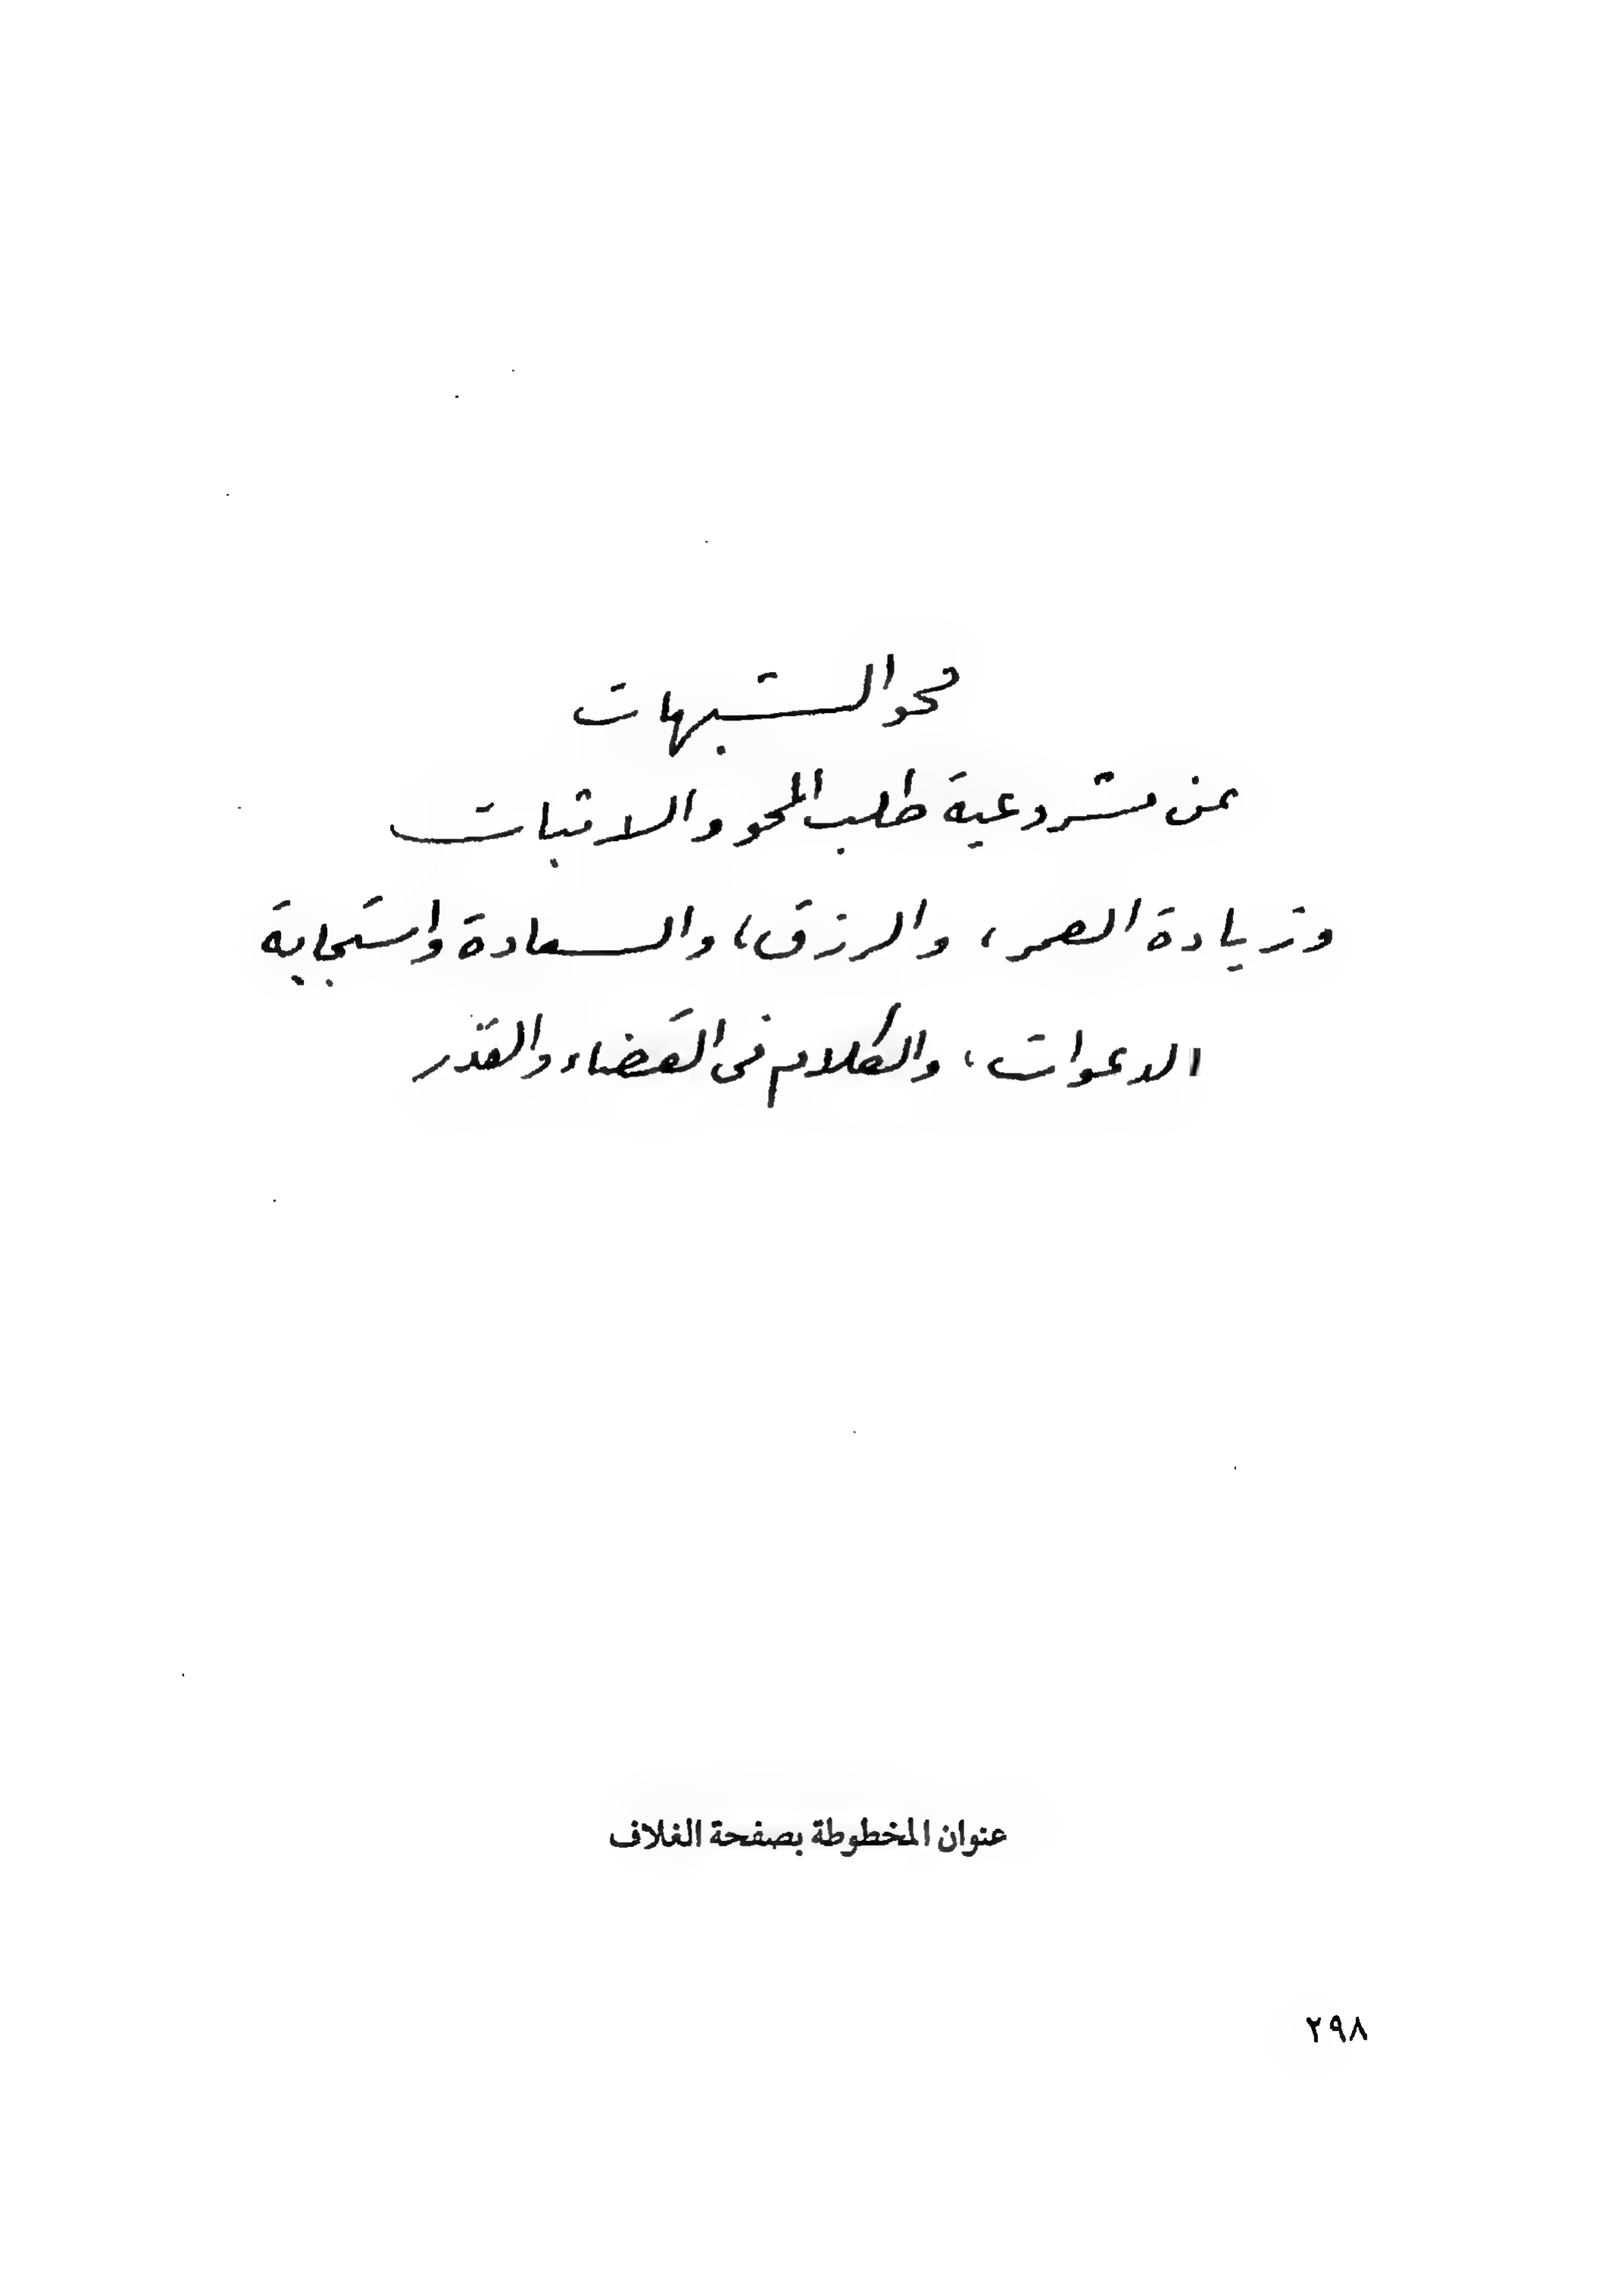 محو الشبهات
عن مشروعية طلب المحو والاثبات
وزيادة العمر، والرزق، والسعادة واستجابة
الدعوات، والكلام فى القضاء والقدر
عنوان المخطوطة بصفحة الغلاف
٢٩٨